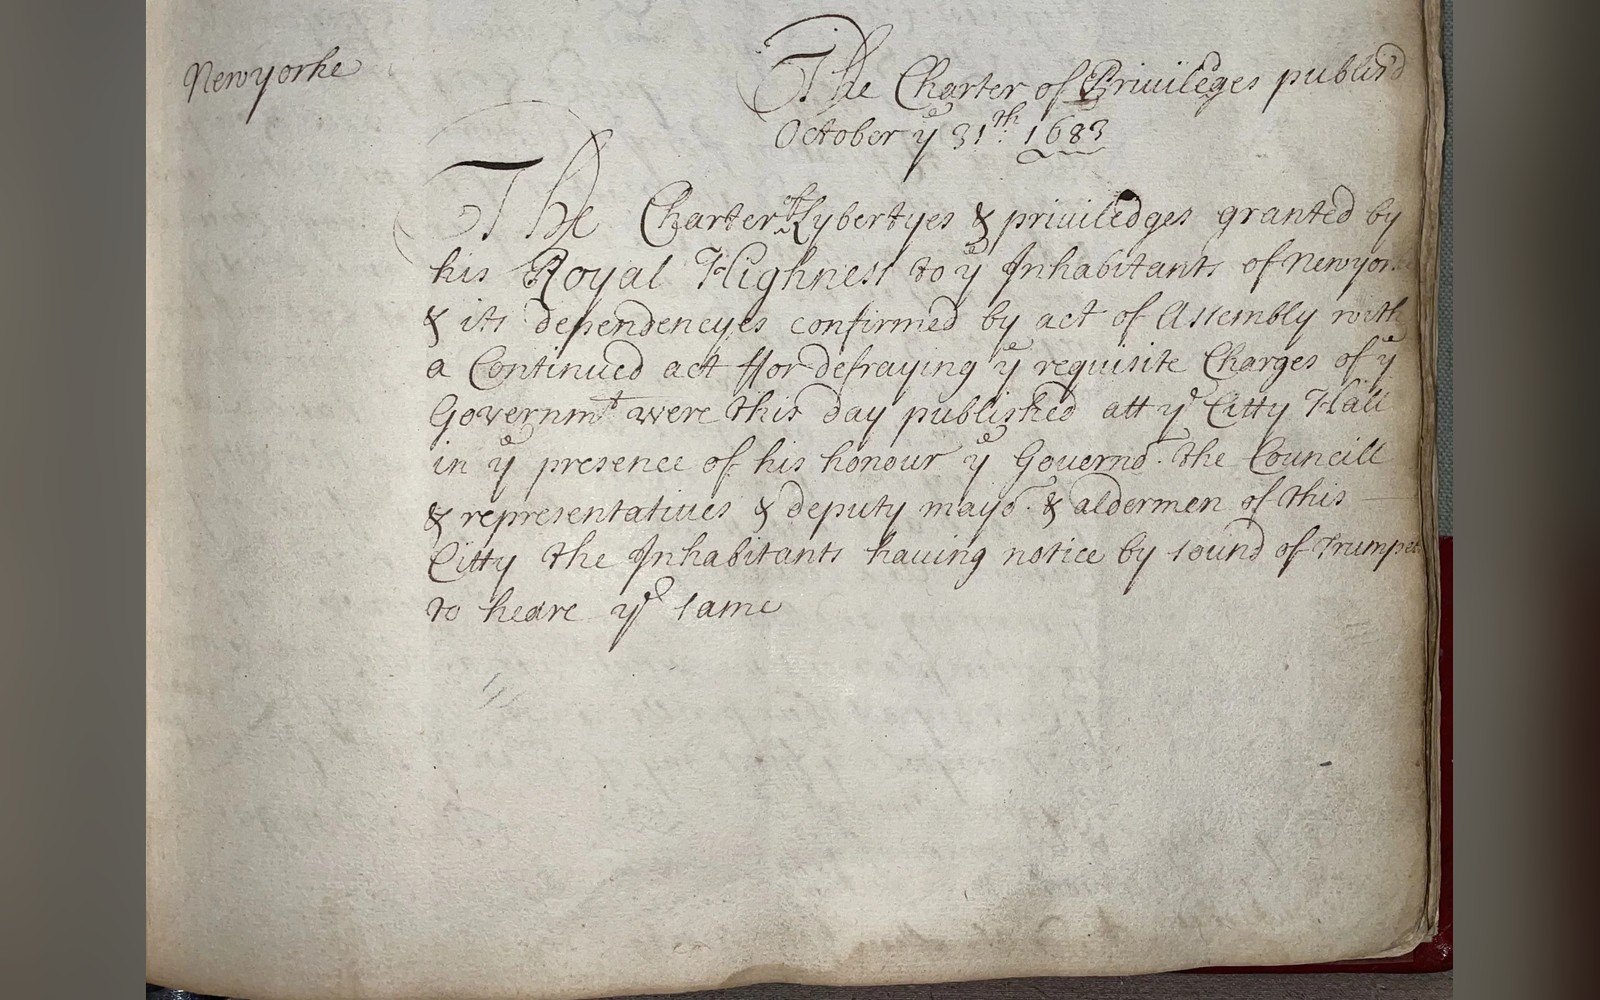 Newyorke
The Charter of Priuileges publis'd
October yͤ 31th. 1683
The Charter of Lybertyes & priuiledges granted by
his Royal Highness to yͤ Inhabitants of Newyorke
& its dependencyes confirmed by act of Assembly with
a Continued act ffor defraying yͤ requisite Charges of yͤ
Governmt were this day published att yͤ Citty Hall
in yͤ presence of his honour yͤ Governo. the Councill
& representatiues & deputy mayo. & aldermen of this
Citty the Inhabitants hauing notice by sound of Trumpet
to heare yͤ same